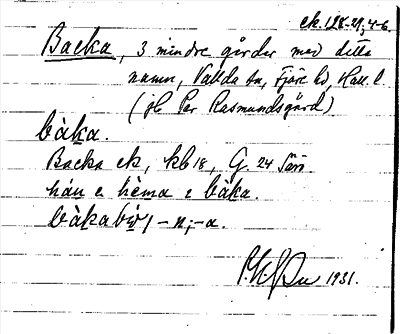 ek. 128-29, 4-6
Backa, 3 mindre gårdar med detta
namn, Vallda sn, Fjäre hd, Hall. l.
(jfr Per Rasmundsgård)
bàka.
Backa ek, kb 18, G. 24 Särö.
hán e hèma e bàka.
bàkabor, -n; -a.
1931.